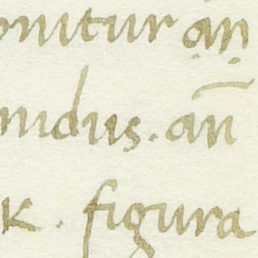 onitur an
nidus. an̄
k. figura